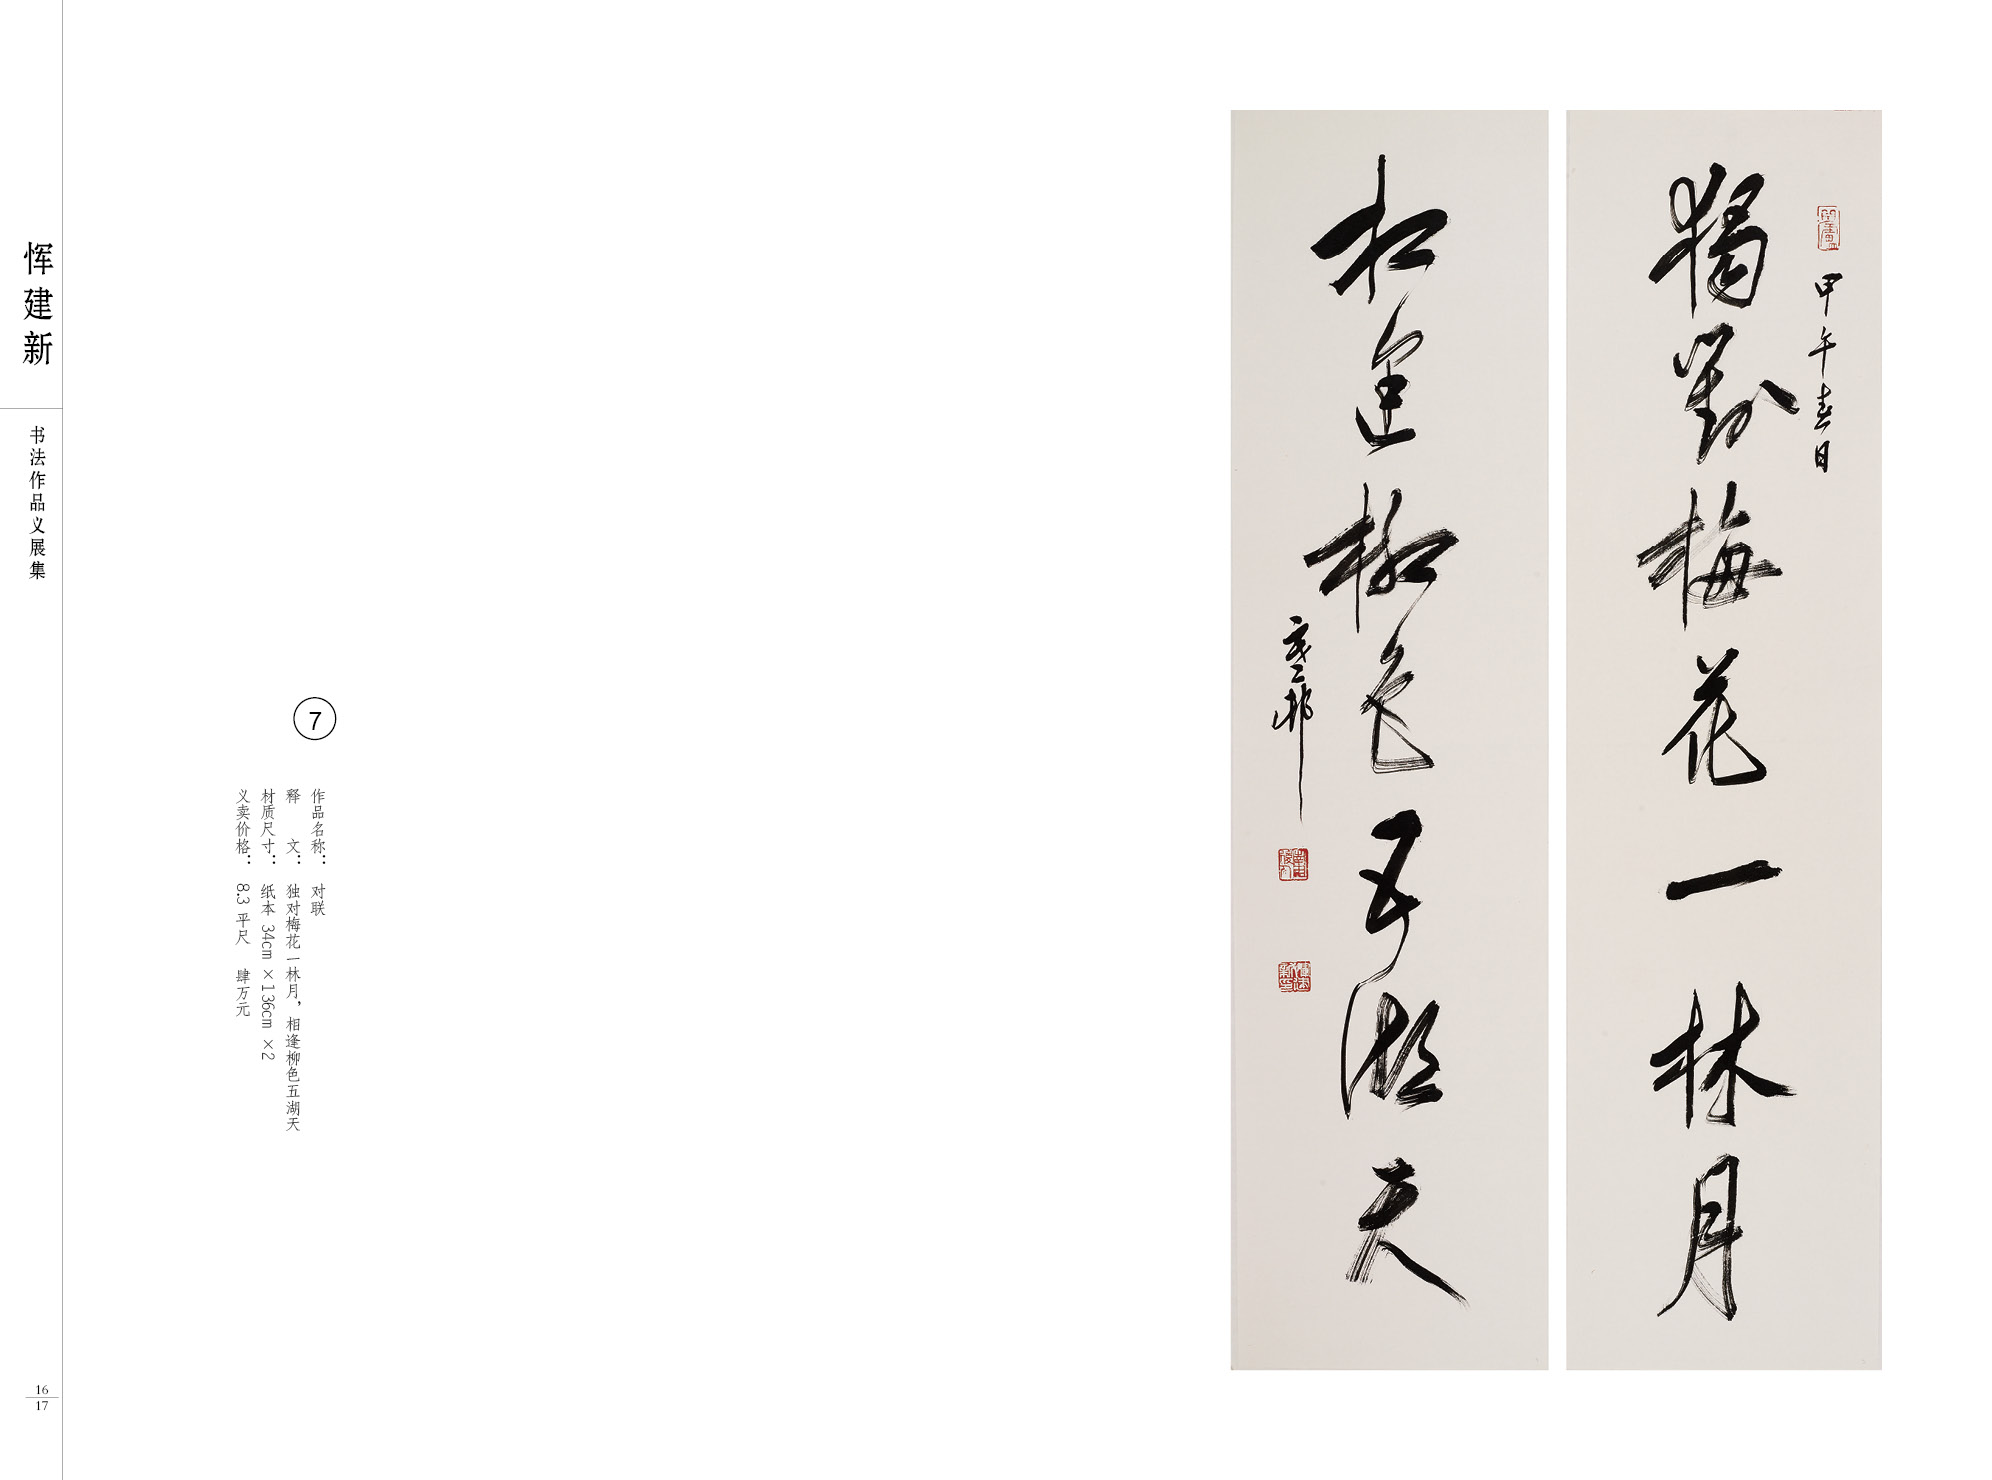 恽建新
书法作品义展集
7
作品名称： 对联
释 文： 独对梅花一林月，相逢柳色五湖天
材质尺寸： 纸本 34cm ×136cm ×2
义卖价格： 8.3 平尺 肆万元
甲午春日
獨對梅花一林月
相逢柳色五湖天
16
17